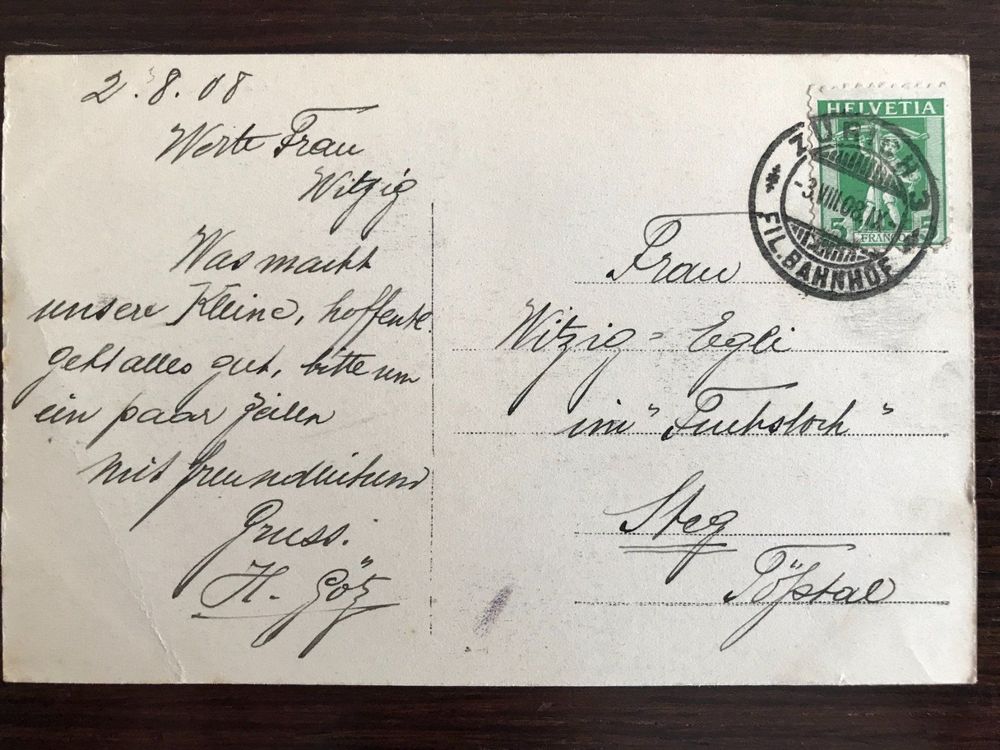 2.8.08
Werte Frau
Witzig
Was macht
unsere Kleine, hoffentl.
geht alles gut, bitte um
ein paar Zeilen
mit freundlichem
Gruss.
H. Götz
HELVETIA
5 FRANCO 5
ZÜRICH 3
-3.VIII.08.IX
FIL. BAHNHOF
Frau
Witzig = Egli
im "Fuchsloch"
Steg
Tößtal